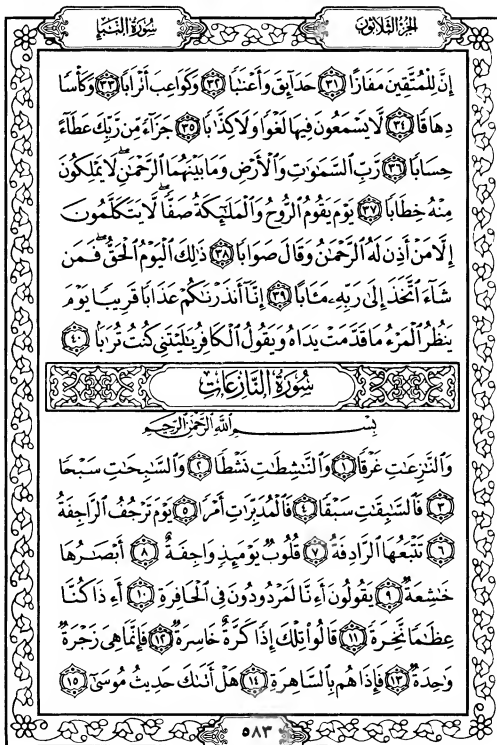 الجزء الثلاثون
سورة النبإ
إِنَّ لِلْمُتَّقِينَ مَفَازًا ٣١ حَدَآئِقَ وَأَعْنَٰبًا ٣٢ وَكَوَاعِبَ أَتْرَابًا ٣٣ وَكَأْسًا
دِهَاقًا ٣٤ لَّا يَسْمَعُونَ فِيهَا لَغْوًا وَلَا كِذَّٰبًا ٣٥ جَزَآءً مِّن رَّبِّكَ عَطَآءً
حِسَابًا ٣٦ رَّبِّ ٱلسَّمَٰوَٰتِ وَٱلْأَرْضِ وَمَا بَيْنَهُمَا ٱلرَّحْمَٰنِۖ لَا يَمْلِكُونَ
مِنْهُ خِطَابًا ٣٧ يَوْمَ يَقُومُ ٱلرُّوحُ وَٱلْمَلَٰٓئِكَةُ صَفًّاۖ لَّا يَتَكَلَّمُونَ
إِلَّا مَنْ أَذِنَ لَهُ ٱلرَّحْمَٰنُ وَقَالَ صَوَابًا ٣٨ ذَٰلِكَ ٱلْيَوْمُ ٱلْحَقُّۖ فَمَن
شَآءَ ٱتَّخَذَ إِلَىٰ رَبِّهِۦ مَـَٔابًا ٣٩ إِنَّآ أَنذَرْنَٰكُمْ عَذَابًا قَرِيبًا يَوْمَ
يَنظُرُ ٱلْمَرْءُ مَا قَدَّمَتْ يَدَاهُ وَيَقُولُ ٱلْكَافِرُ يَٰلَيْتَنِي كُنتُ تُرَٰبًا ٤٠
سورة النازعات
بسم الله الرحمن الرحيم
وَٱلنَّٰزِعَٰتِ غَرْقًا ١ وَٱلنَّٰشِطَٰتِ نَشْطًا ٢ وَٱلسَّٰبِحَٰتِ سَبْحًا
٣ فَٱلسَّٰبِقَٰتِ سَبْقًا ٤ فَٱلْمُدَبِّرَٰتِ أَمْرًا ٥ يَوْمَ تَرْجُفُ ٱلرَّاجِفَةُ
٦ تَتْبَعُهَا ٱلرَّادِفَةُ ٧ قُلُوبٌ يَوْمَئِذٍ وَاجِفَةٌ ٨ أَبْصَٰرُهَا
خَٰشِعَةٌ ٩ يَقُولُونَ أَءِنَّا لَمَرْدُودُونَ فِي ٱلْحَافِرَةِ ١٠ أَءِذَا كُنَّا
عِظَٰمًا نَّخِرَةً ١١ قَالُوا۟ تِلْكَ إِذًا كَرَّةٌ خَاسِرَةٌ ١٢ فَإِنَّمَا هِيَ زَجْرَةٌ
وَٰحِدَةٌ ١٣ فَإِذَا هُم بِٱلسَّاهِرَةِ ١٤ هَلْ أَتَىٰكَ حَدِيثُ مُوسَىٰٓ ١٥
٥٨٣